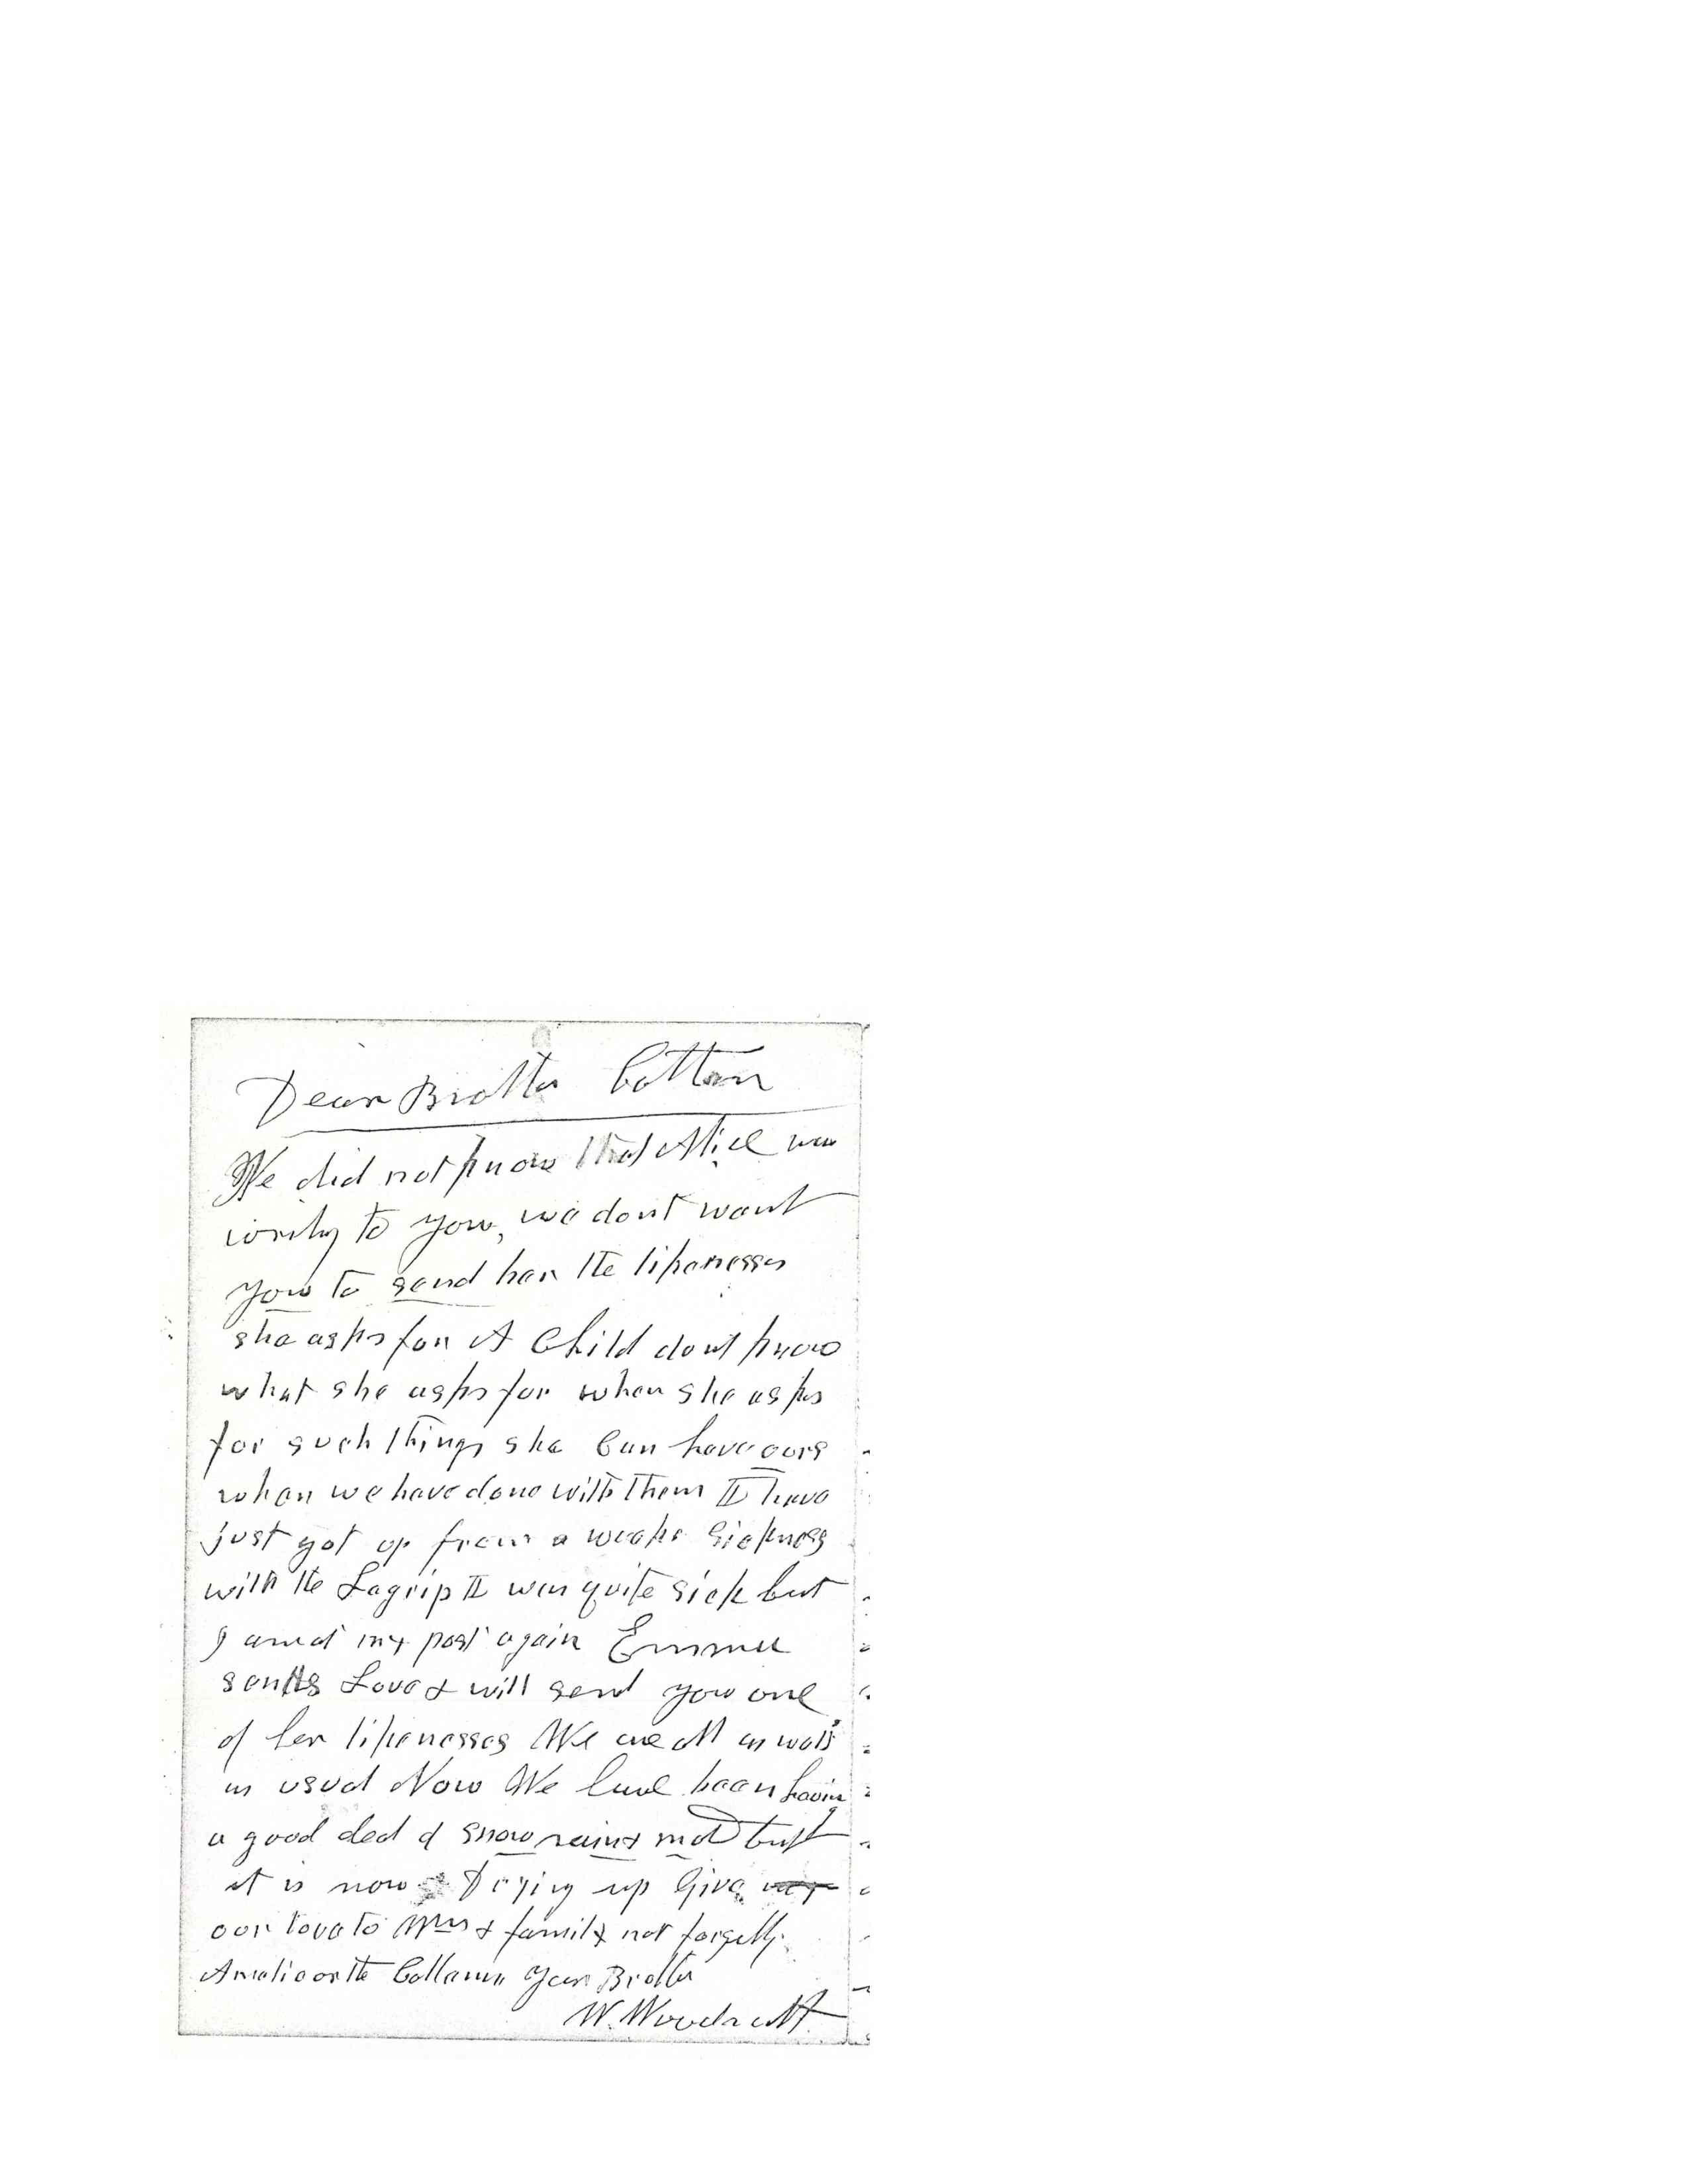 Dear Brother Cottam
We did not know that Alice was
writing to you, we dont want
you to send her the likenesses
she asks for A Child dont know
what she asks for when she asks
for such things she Can have ours
when we have done with them I have
just got up from a weeks Sickness
with the Lagrip I was quite sick but
I am at my post again Emma
sends Love & will send you one
of her likenesses We are all as well
as usual Now We have been having
a good deal of snow rain & mud but
it is now Drying up Give my
our love to Mrs & family not forgetting
or the Cottams Your Brother
W. Woodruff